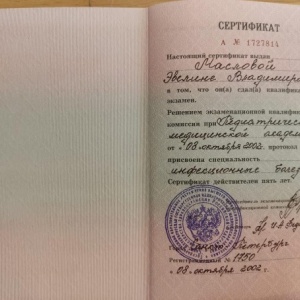 СЕРТИФИКАТ
А № 1727614
Настоящий сертификат выдан
Масловой
Эвелине Владимиро
в том, что он(а) сдал(а) квалифика
экзамен.
Решением экзаменационной квалифи
комиссии при Педиатричес
медицинской академ
от « 08 октября 2002 протокол
присвоена специальность
инфекционные болез
Сертификат действителен пять лет.
Город Санкт-Петербург
Регистрационный № 1750
« 08 » октября 2002 г.